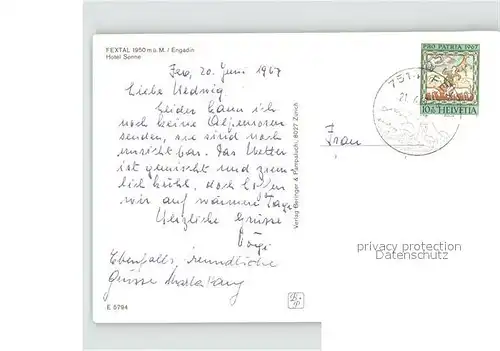 FEXTAL 1950 m ü. M. / Engadin
Hotel Sonne
Fex, 20. Juni 1967
Liebe Hedwig!
Leider kann ich
noch keine Alpenrosen
senden, sie sind noch
unsichtbar. Das Wetter
ist gemischt und ziem-
lich kühl, doch hoffen
wir auf wärmere Tage.
Herzliche Grüsse
Ebenfalls freundliche
Grüsse
Frau
PRO PATRIA 1967
10 HELVETIA
751
21.
Verlag Geringer & Pampaluchi, 8027 Zürich
privacy protection
Datenschutz
E 5794